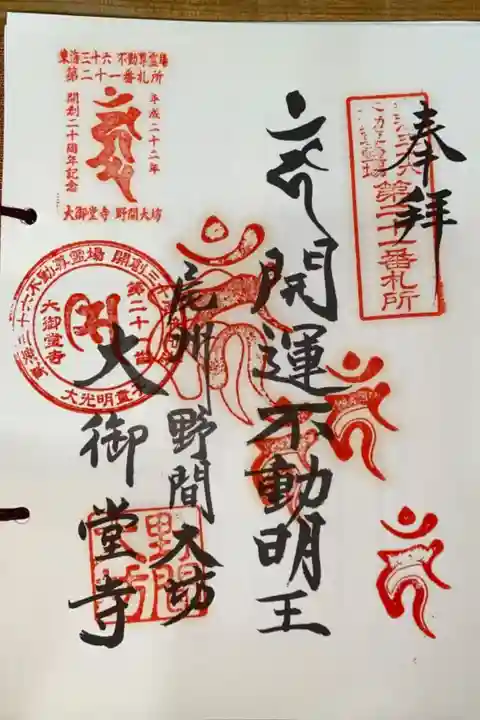 奉拝
第二十一番札所
開運不動明王
尾州野間大坊
大御堂寺
東海三十六不動尊霊場
第二十一番札所
平成二十二年
開創二十周年記念
大御堂寺 野間大坊
三十六不動尊霊場 開創三
第二十一
大御堂寺
大光明
野間
坊